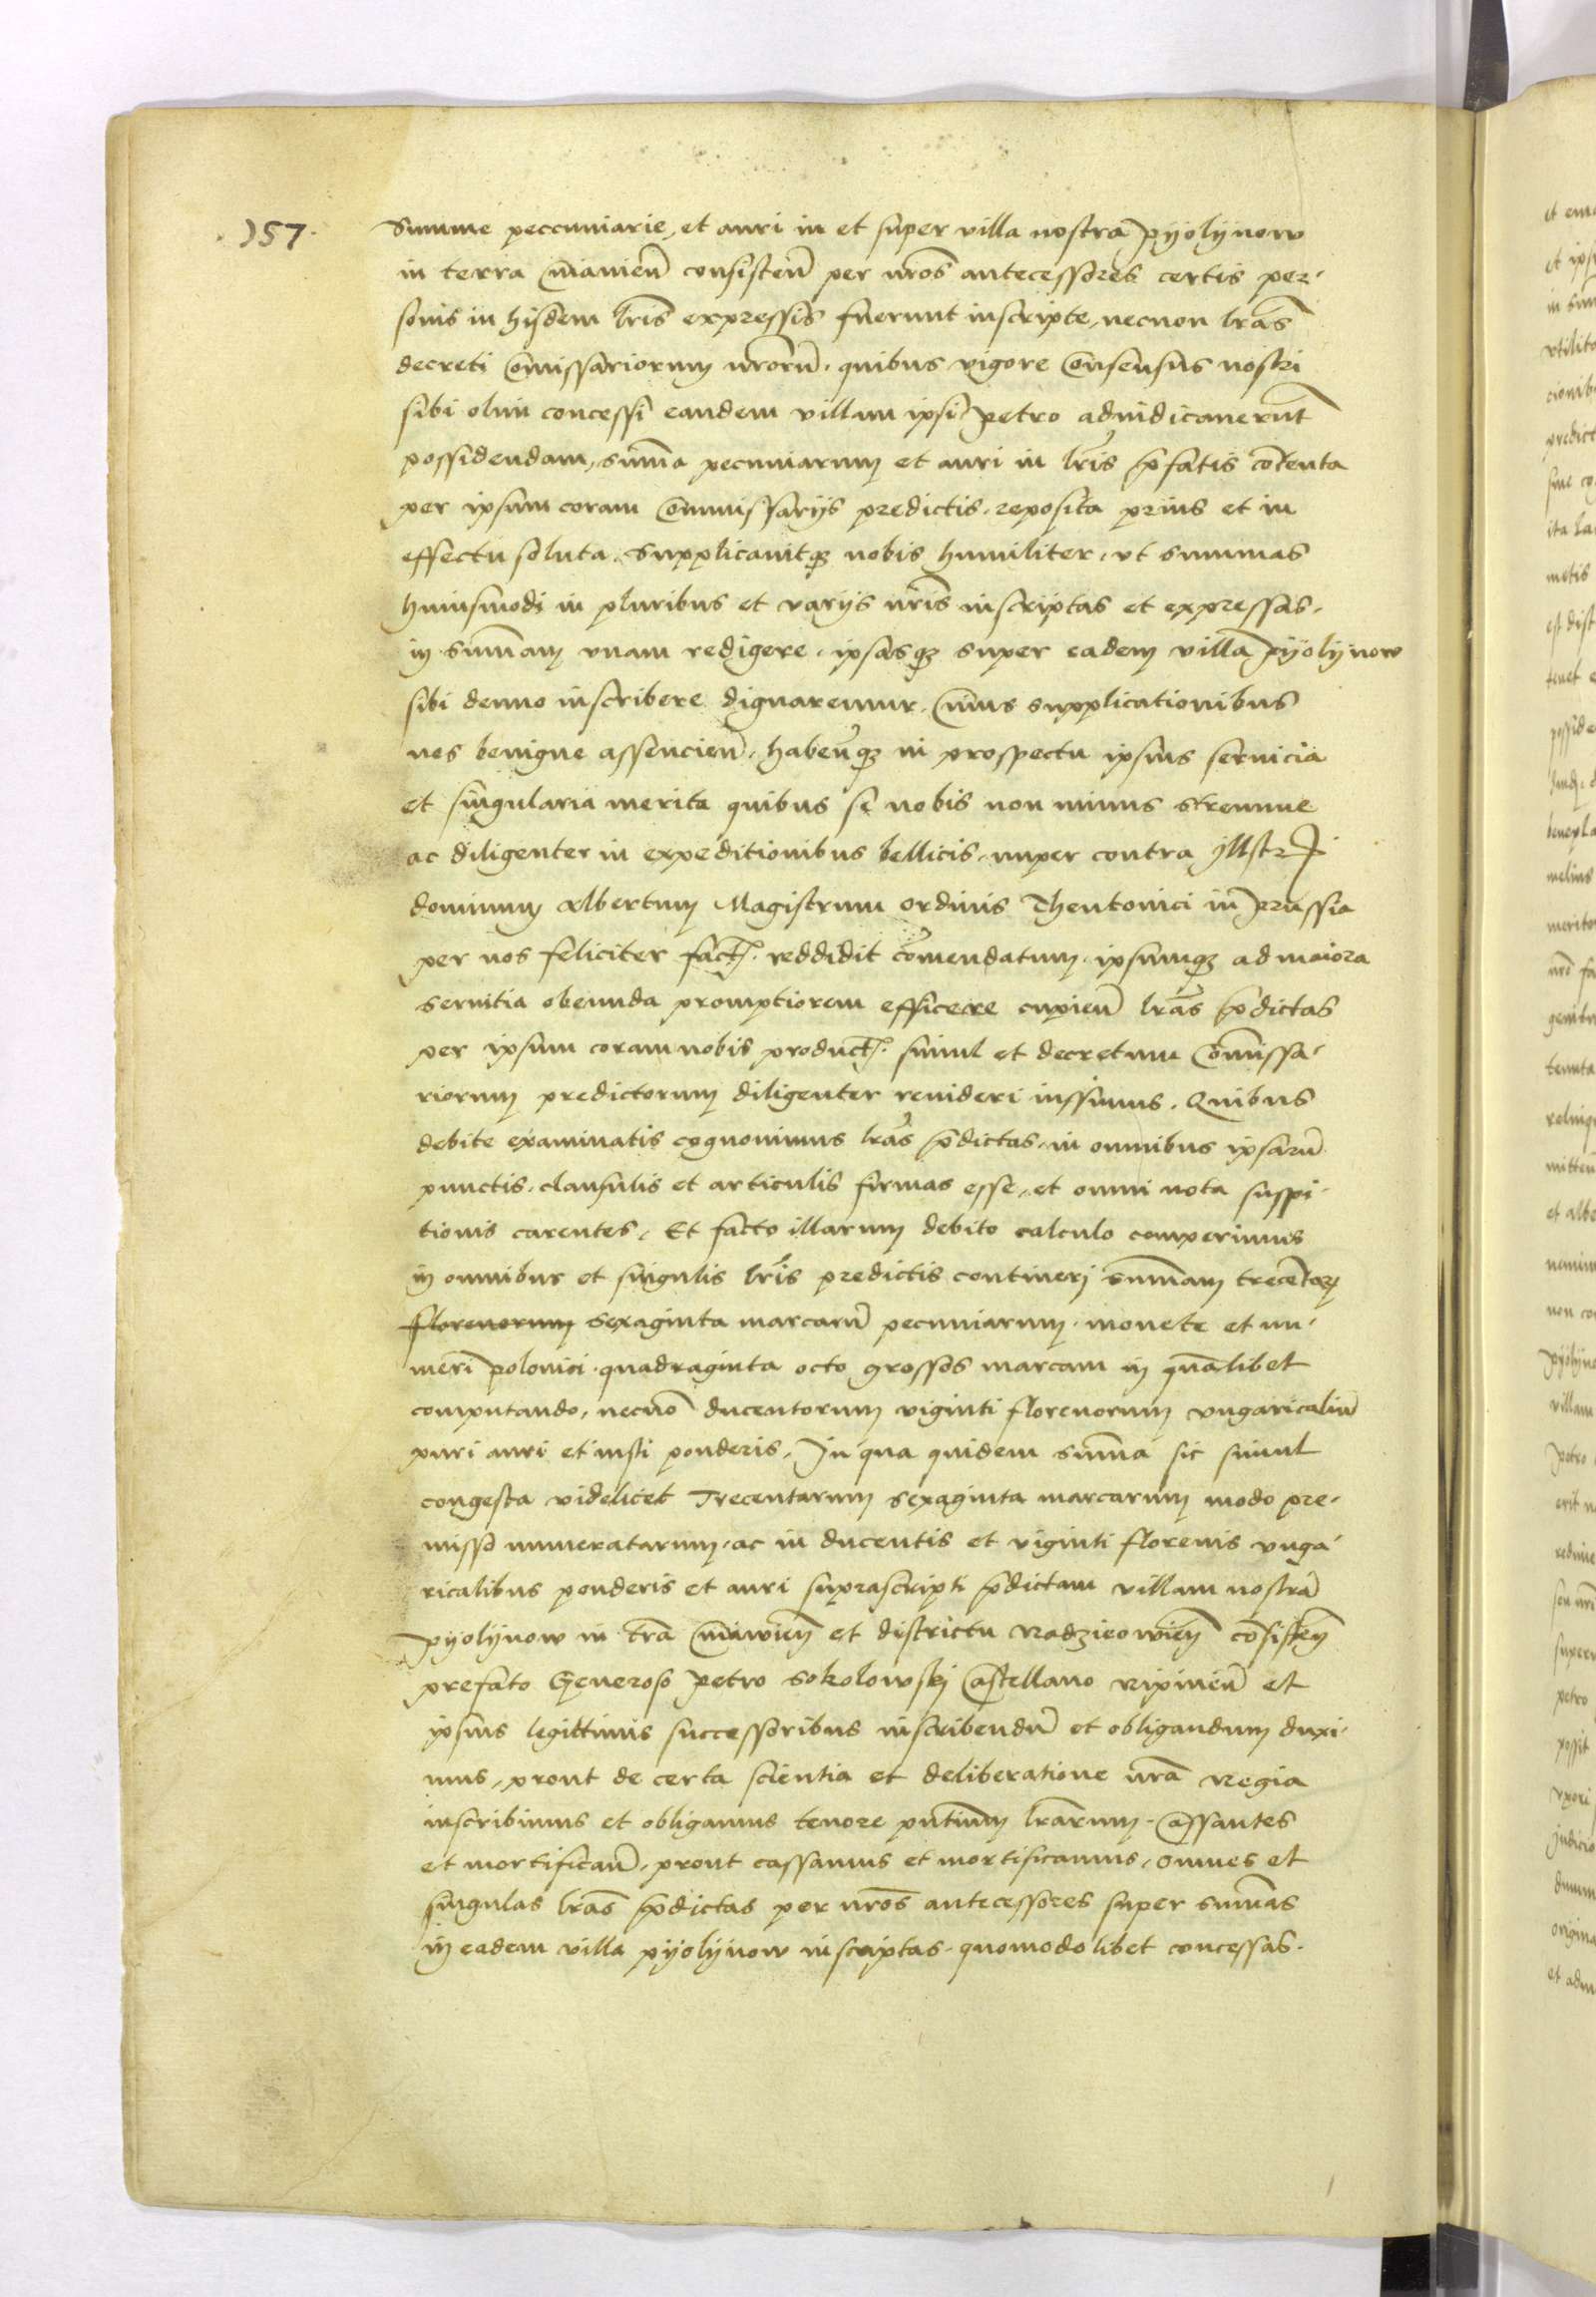 157.
Summe peccuniarie, et auri in et super villa nostra pyolynow
in terra Cuiavien̄ consisten̄ per nr̄os antecessores certis per-
sonis in hisdem lr̄is expressis fuerunt inscripte, necnon lr̄as
decreti Com̄issariorum nr̄orū, quibus vigore Consensus nostri
sibi olim concessi eandem villam ipsi petro adiudicaverūt
possidendam, sum̄a pecuniarum et auri in lr̄is p̄fatis cōtenta
per ipsum coram Commissariis predictis, reposita prius et in
effectu soluta, Supplicavitqȝ nobis humiliter, vt summas
huiusmodi in pluribus et variis lr̄is inscriptas et expressas,
in sum̄am vnam redigere, ipsasqȝ super eadem villa pyolynow
sibi denuo inscribere dignaremur, Cuius supplicationibus
nos benigne assencien̄, haben̄qȝ in prospectu ipsius servicia
et singularia merita quibus se nobis non minus strennue
ac diligenter in expeditionibus bellicis, nuper contra Illstr̄
dominum Albertum Magistrum ordinis Theutonici in prussia
per nos feliciter fact̄. reddidit cōmendatum, ipsumqȝ ad maiora
servitia obeunda promptiorem efficere cupien̄ lr̄as p̄dictas
per ipsum coram nobis product̄. simul et decretum Com̄issa-
riorum predictorum diligenter revideri iussimus. Quibus
debite examinatis cognovimus lr̄as p̄dictas, in omnibus ipsarū
punctis, clausulis et articulis firmas esse, et omni nota suspi-
tionis carentes, Et facto illarum debito calculo comperimus
in omnibus et singulis lr̄is predictis contineri summam trecētaꝝ
florenorum sexaginta marcarū pecuniarum, monete et nu-
meri polonici, quadraginta octo grossos marcam in quālibet
computando, necnō ducentorum viginti florenorum vngaricaliū
puri auri et iusti ponderis, In qua quidem sum̄a sic simul
congesta videlicet Trecentarum sexaginta marcarum modo pre-
misso numeratarum, ac in ducentis et viginti florenis vnga-
ricalibus ponderis et auri suprascripti p̄dictam villam nostrā
pyolynow in tr̄a Cuiavien̄ et districtu Radzieiowien̄ cōsisten̄
prefato Generoso petro Sokolowski Castellano Ripinien̄ et
ipsius legittimis successoribus inscribendū et obligandum duxi-
mus, prout de certa scientia et deliberatione nr̄a Regia
inscribimus et obligamus tenore pn̄tium lr̄arum. Cassantes
et mortifican̄, prout cassamus et mortificamus, omnes et
singulas lr̄as p̄dictas per nr̄os antecessores super sum̄as
in eadem villa pyolynow inscriptas, quomodolibet concessas.